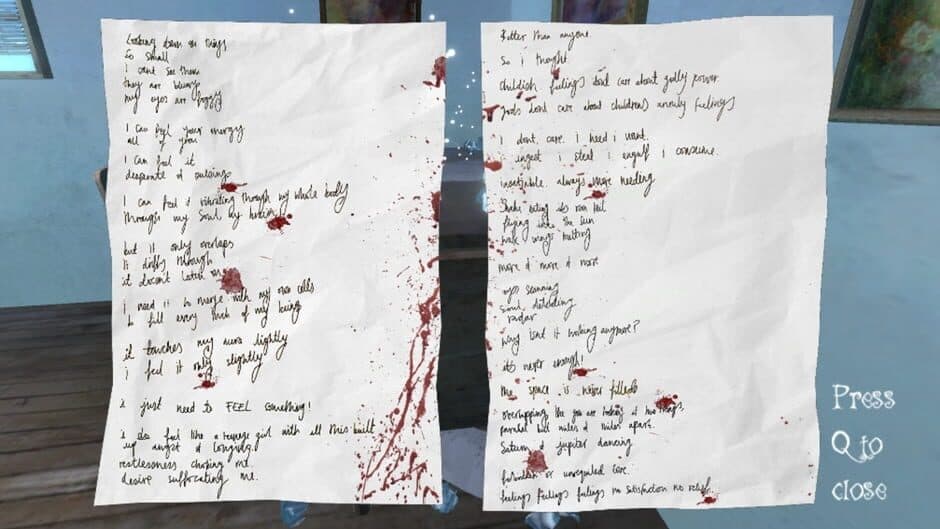 Looking down on things
So small
I cant see them
they are blurry
my eyes are foggy
I can feel your energy
all of you
I can feel it
desperate & pulsing
I can feel it vibrating through my whole body
through my soul, my
but it only overlaps
It drifts through
it doesn't latch on
I need it to merge with my own cells
to fill every inch of my being
it touches my aura lightly
I feel it only slightly
I just need to FEEL something!
I also feel like a teenage girl with all this built
up angst & longing.
restlessness choking me.
desire suffocating me.
Better than anyone.
So i thought.
childish feelings dont care about godly power
gods dont care about childrens feelings
i dont care. i need i want.
i ingest i steal i engulf i consume.
insatiable. always more needing
Snake eating its own tail
flying into the sun
wax wings melting
more & more & more
eyes scanning
soul detecting
radar
Why isnt it working anymore?
its never enough!
the space is never filled
overlapping like you are looking at two things,
parallel but miles & miles apart.
Saturn & jupiter dancing
forbidden or unrequited love.
feelings feelings feelings no satisfaction no relief
Press
Q to
close